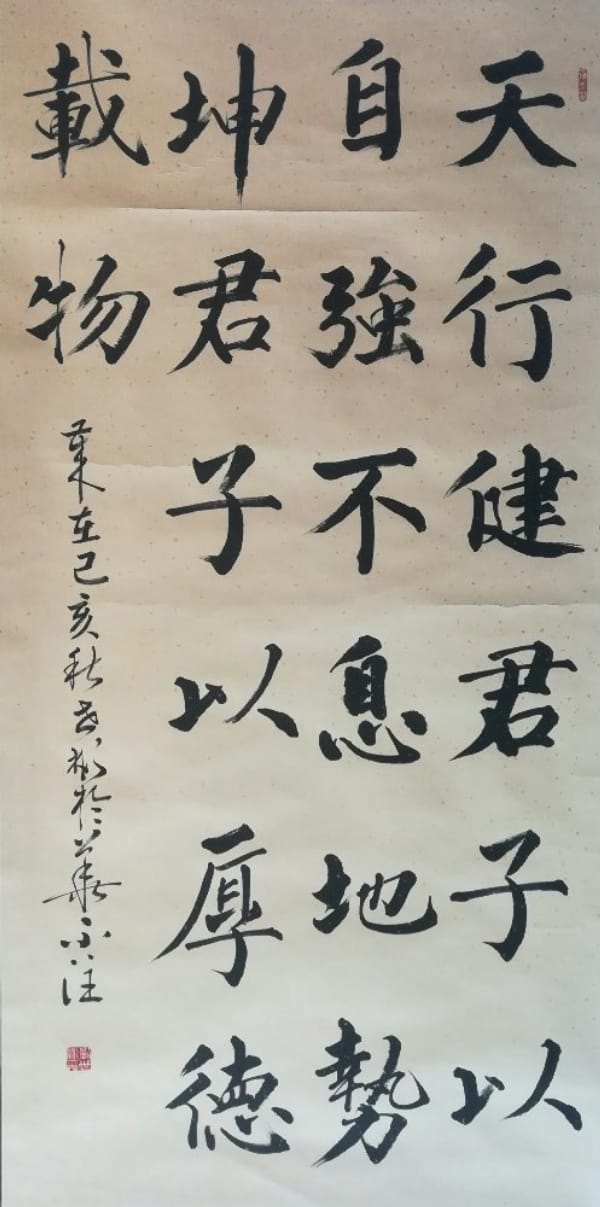 天行健君子以
自強不息地勢
坤君子以厚德
載物
歲在己亥秋書於